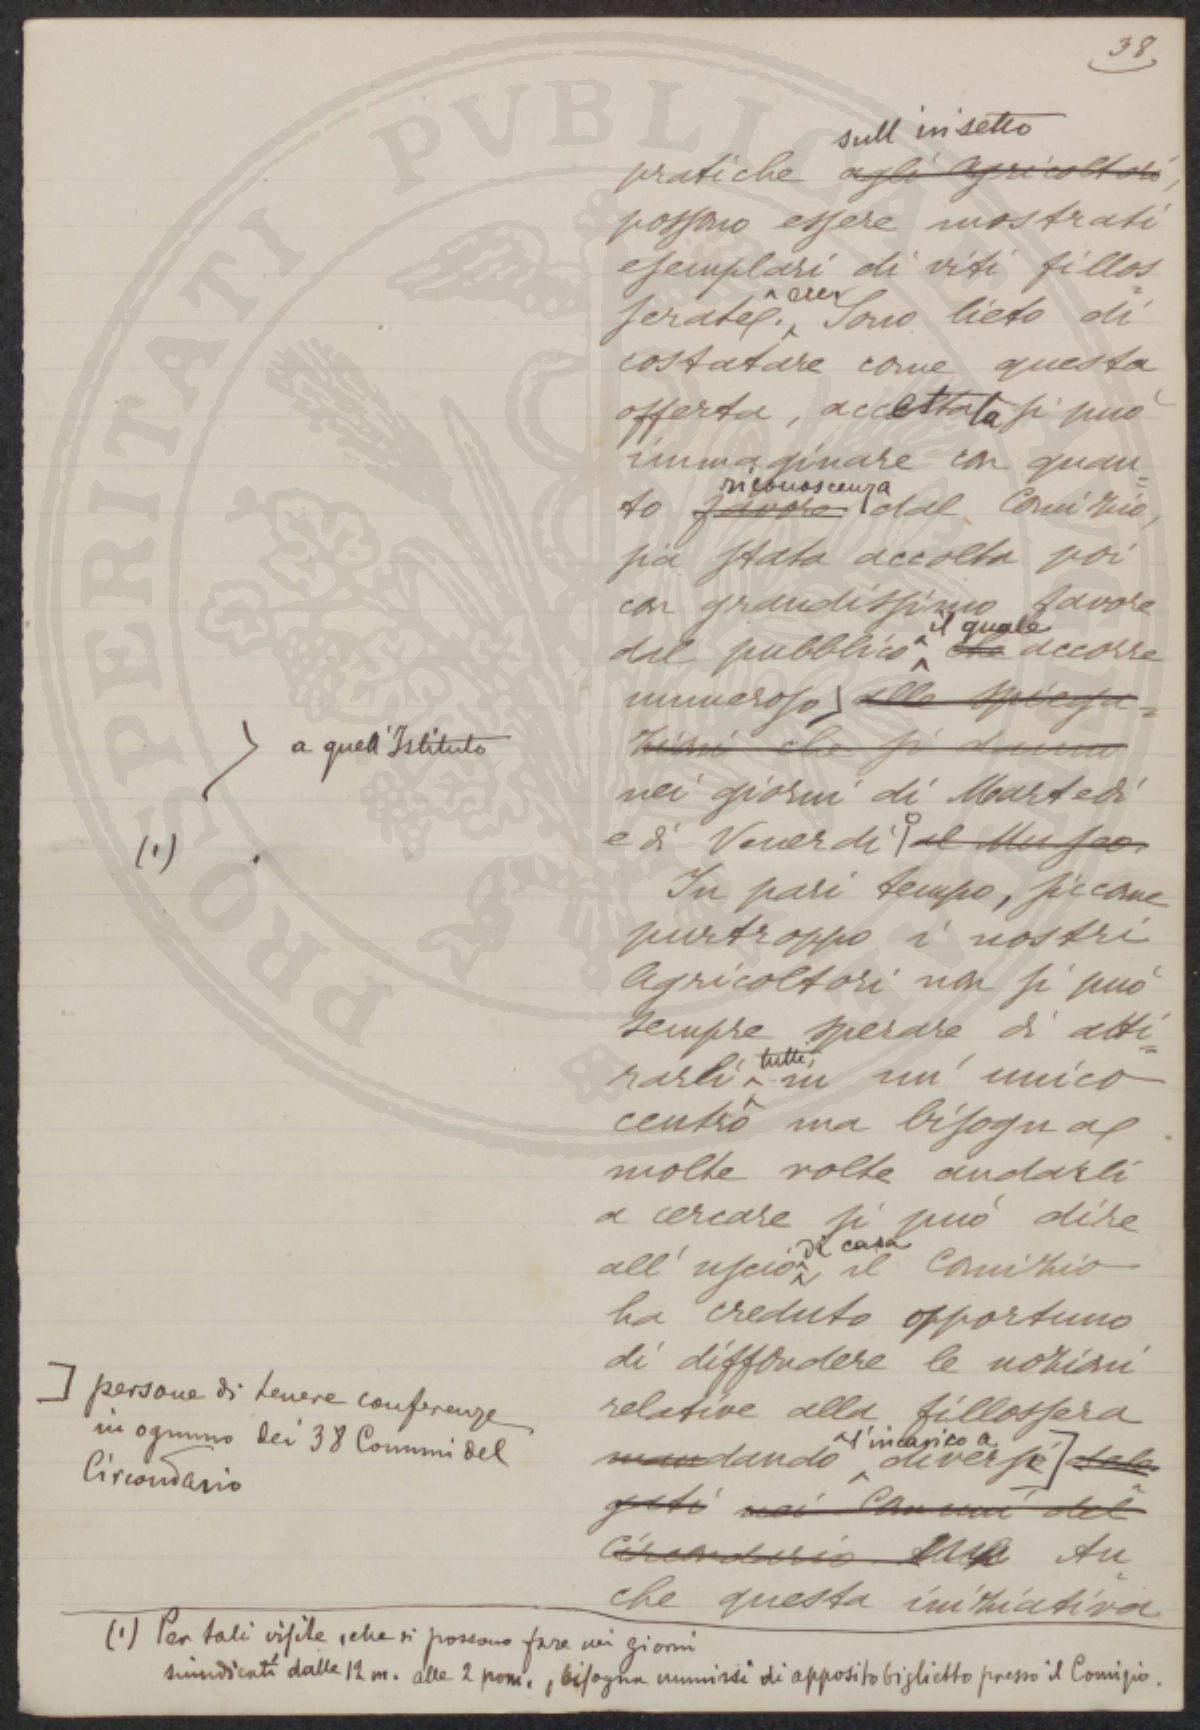 38
sull'insetto
pratiche agli Agricoltori,
possono essere mostrati
esemplari di viti fillos=
serate. Sono lieto di
costatare come questa
offerta, accettata si può
immaginare con quan=
riconoscenza
to favore dal Comizio,
sia stata accolta poi
con grandissimo favore
il quale
dal pubblico che accorre
numeroso alle spiega=
zioni che si danno
a quell'Istituto
nei giorni di Martedì
e di Venerdì al Museo.
(1)
In pari tempo, siccome
purtroppo i nostri
Agricoltori non si può
sempre sperare di atti=
tutti,
rarli in un'unico
centro ma bisogna
molte volte andarli
a cercare si può dire
di casa
all'uscio, il Comizio
ha creduto opportuno
di diffondere le nozioni
relative alla fillossera
l'incarico a
mandando diversi] dele=
gati nei Comuni del
Circondario An=
che questa iniziativa
] persone di tenere conferenze
in ognuno dei 38 Comuni del
Circondario
(1) Per tali visite, che si possono fare nei giorni
suindicati dalle 12 m. alle 2 pom., bisogna munirsi di apposito biglietto presso il Comizio.
PROSPERITATI PVBLICAE